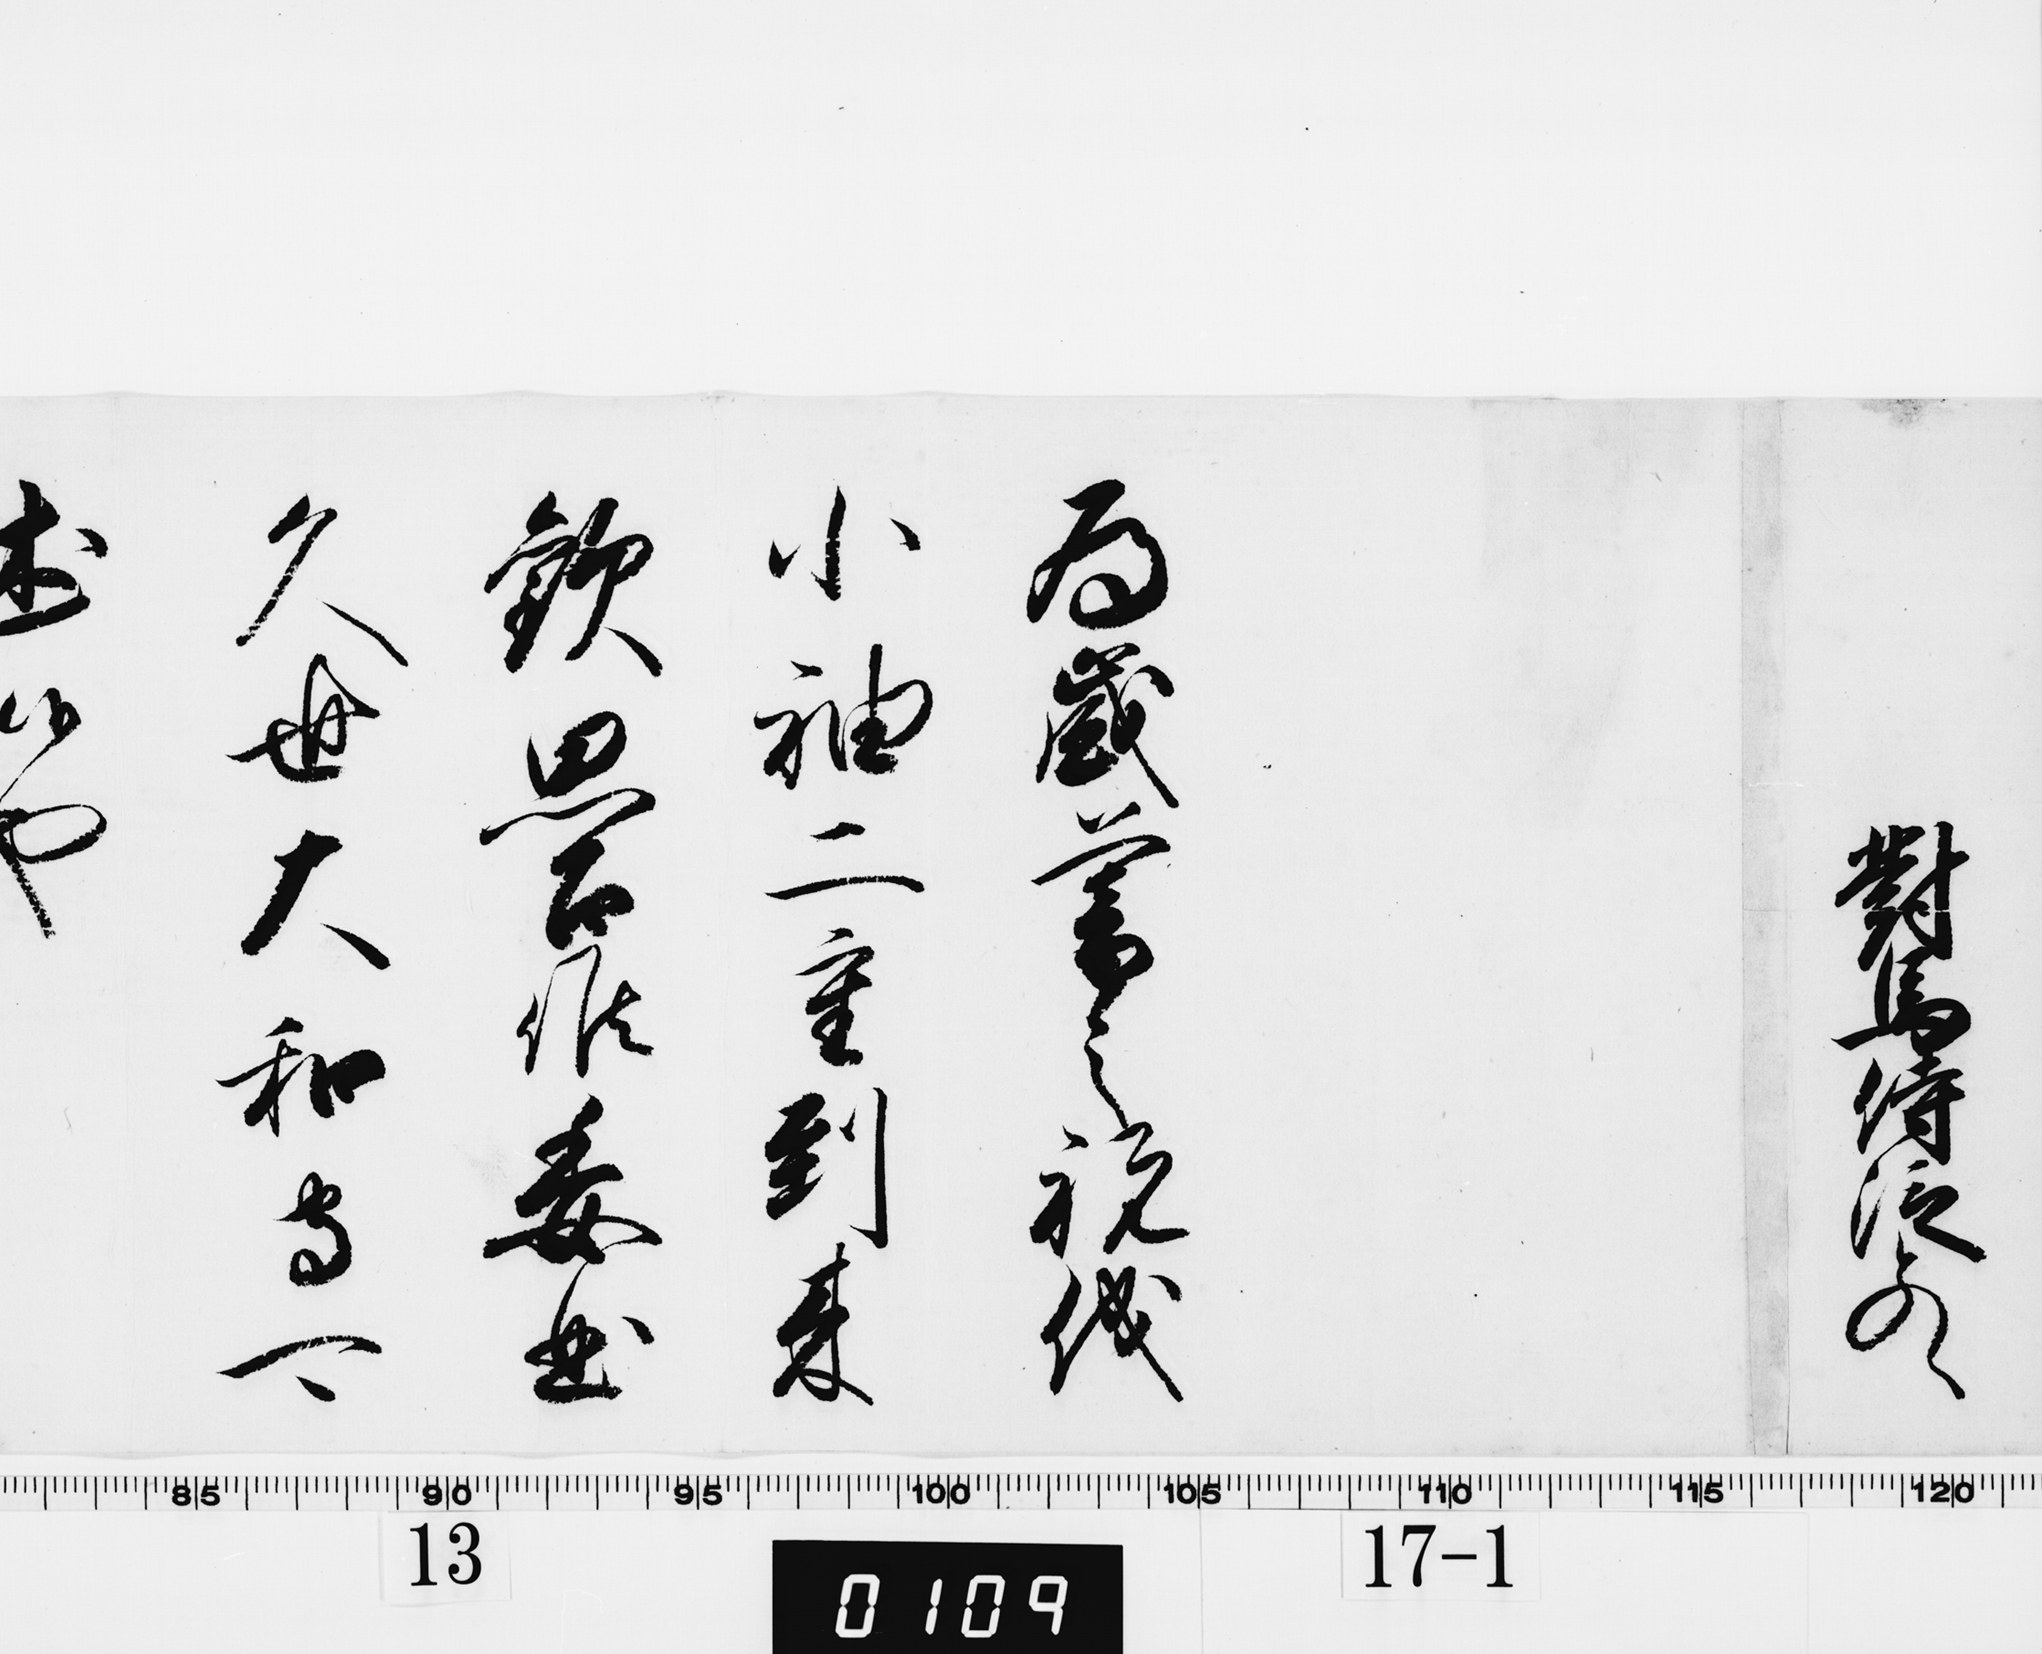 對馬侍從殿
為歳暮之祝儀
小袖二重到来
歓思召候委曲
久世大和守可
述候也
85 90 95 100 105 110 115 120
13
0109
17-1